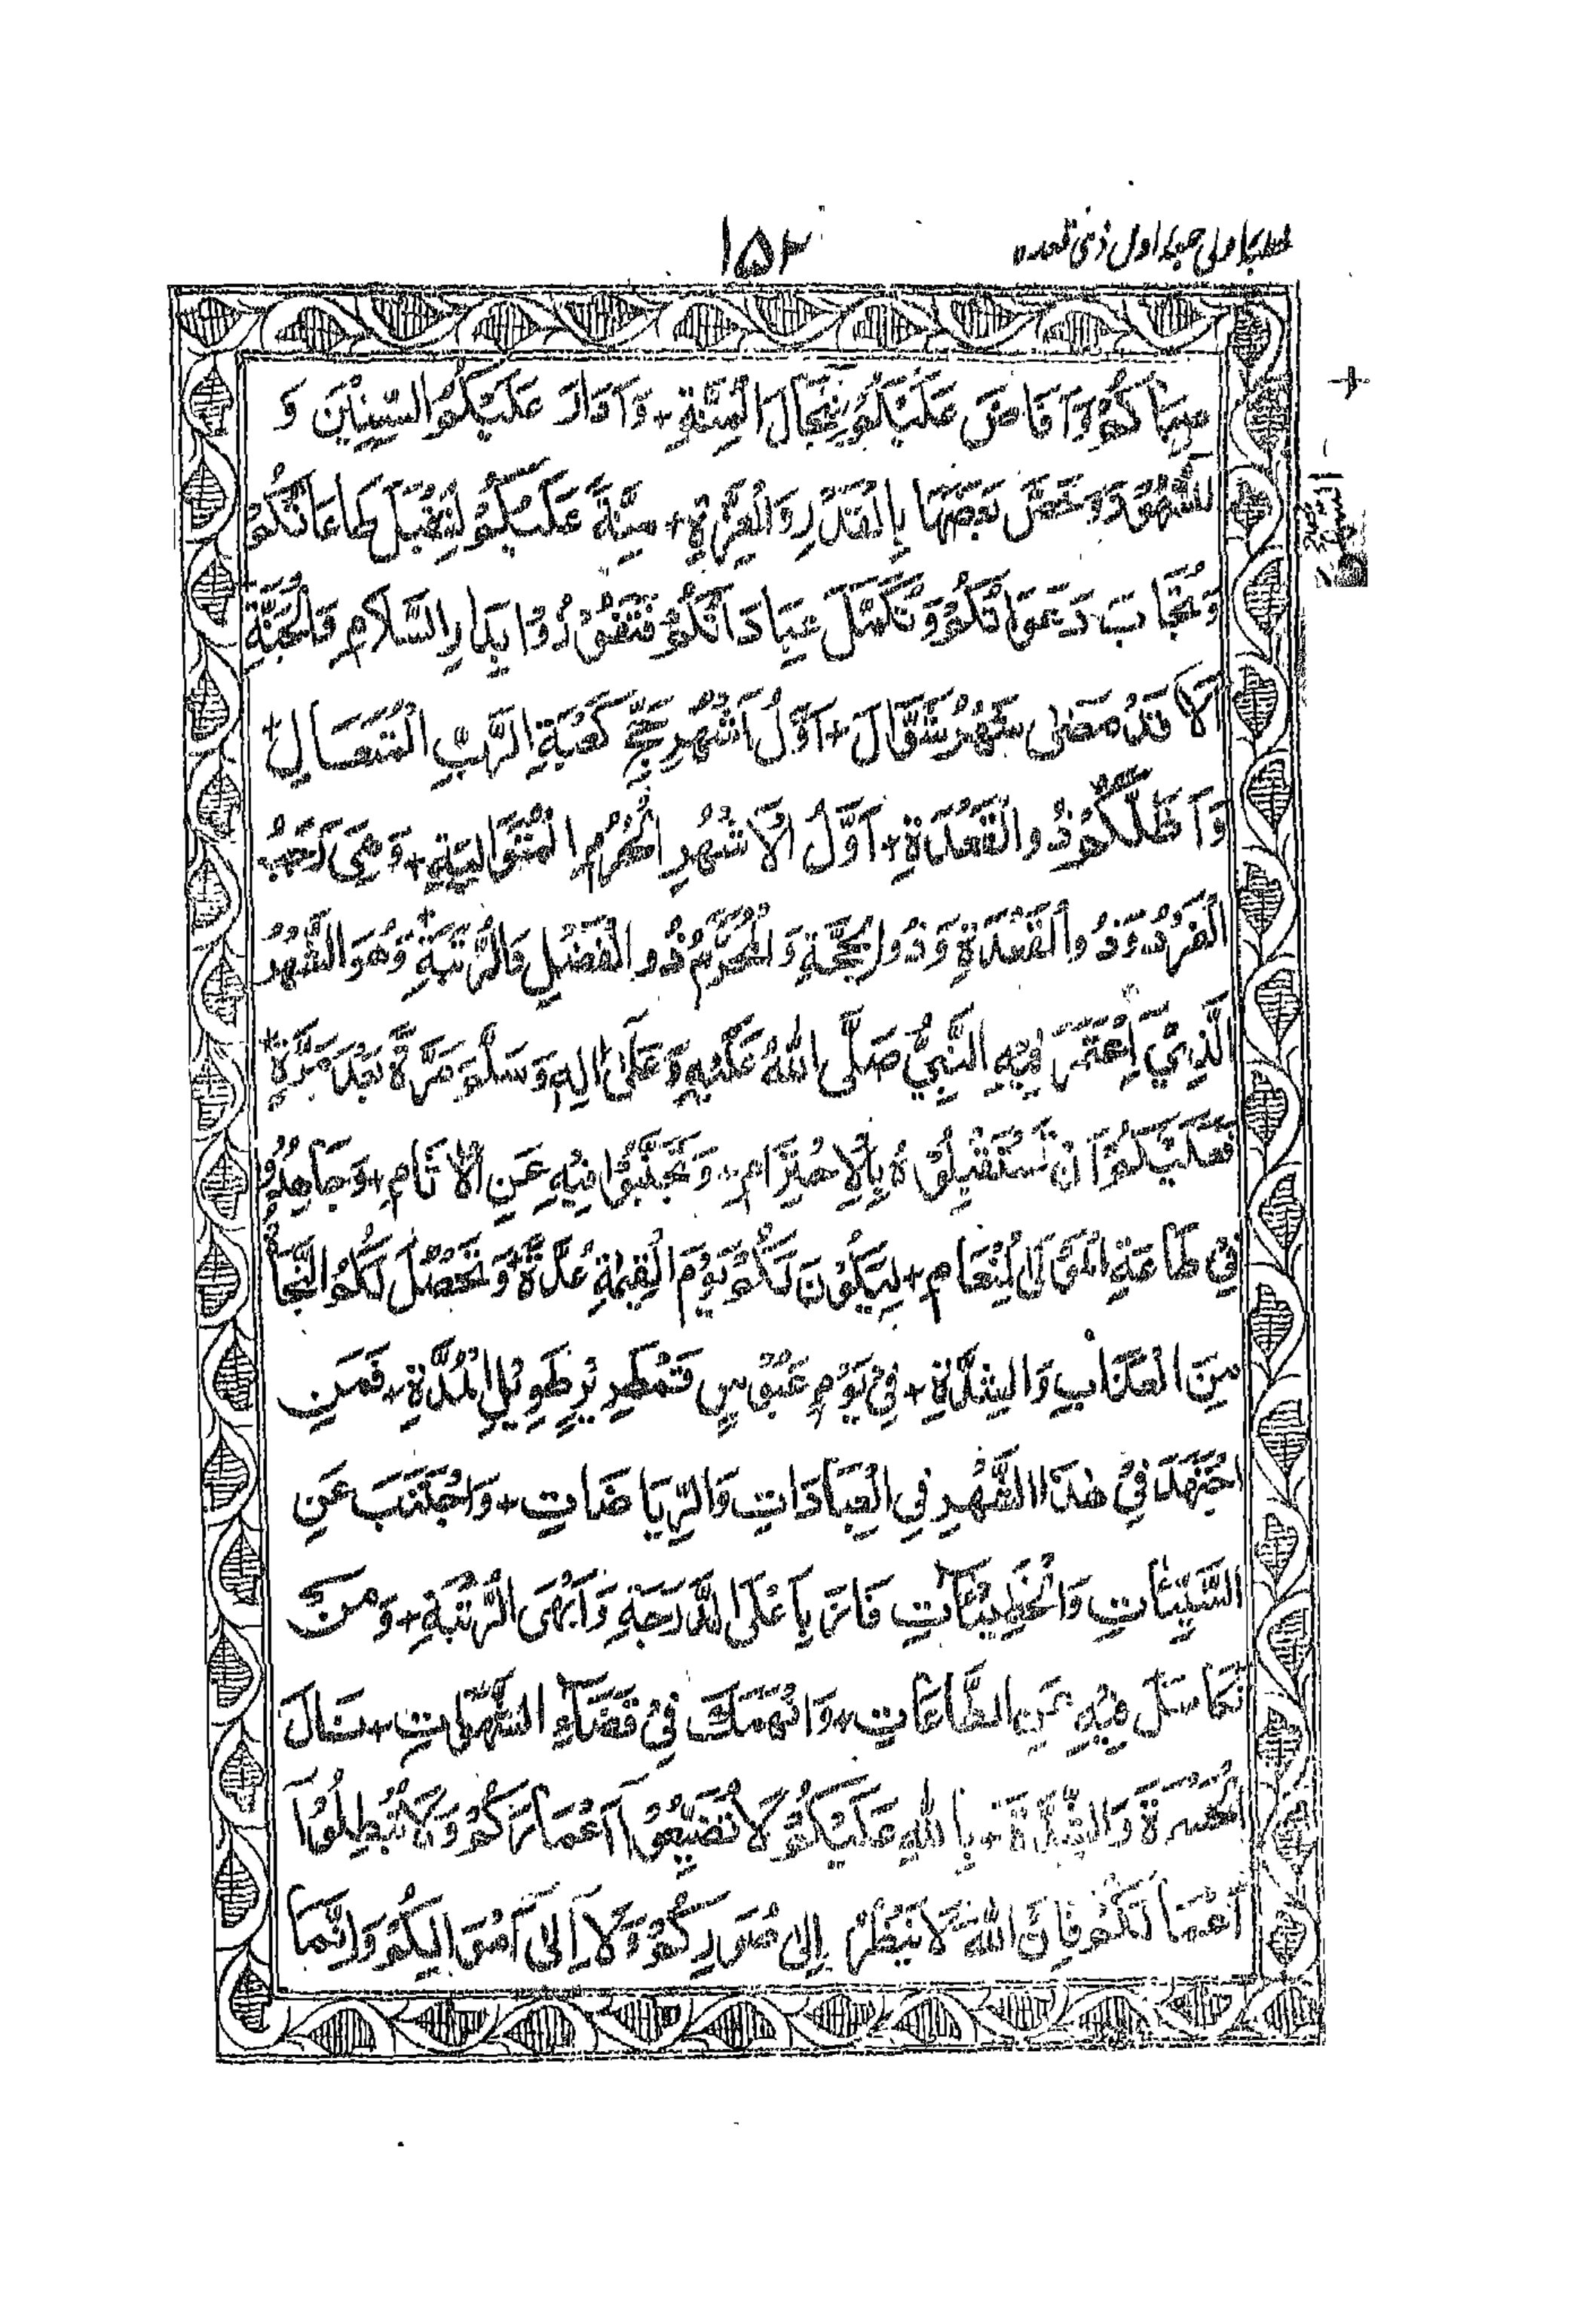 ۱۵۲
خطبۂ اولی جمعۂ اول ذی قعدہ
صِبَاكُمْ وَاَفَاضَ عَلَيْكُمْ سِجَالَ الْمِنَّةِ + وَاَدَارَ عَلَيْكُمُ السِّنِيْنَ وَ
الشُّهُوْرَ وَخَصَّ بَعْضَهَا بِالْقَدْرِ وَالْعِزَّةِ + مِنَّةً عَلَيْكُمْ لِتُقْبَلَ طَاعَاتُكُمْ
وَتُجَابَ دَعَوَاتُكُمْ وَتَكْمُلَ عِبَادَاتُكُمْ فَتَفُوْزُوْا بِدَارِ السَّلَامِ وَالْجَنَّةِ
اَلَا قَدْ مَضٰى شَهْرُ شَوَّالَ + اَوَّلُ اَشْهُرِ حَجِّ كَعْبَةِ الرَّبِّ الْمُتَعَالِ +
وَاَظَلَّكُمْ ذُو الْقَعْدَةِ + اَوَّلُ الْاَشْهُرِ الْحُرُمِ الْمُتَوَالِيَةِ + وَهِيَ رَجَبُ
الْفَرْدُ وَذُو الْقَعْدَةِ وَذُو الْحِجَّةِ وَالْمُحَرَّمُ ذُو الْفَضْلِ وَالرُّتْبَةِ + وَهُوَ الشَّهْرُ
الَّذِيْ اِعْتَمَرَ فِيْهِ النَّبِيُّ صَلَّى اللهُ عَلَيْهِ وَعَلٰى اٰلِهٖ وَسَلَّمَ مَرَّةً بَعْدَ مَرَّةٍ +
فَعَلَيْكُمْ اَنْ تَسْتَقْبِلُوْهُ بِالْاِحْتِرَامِ + وَتَجْتَنِبُوْا فِيْهِ عَنِ الْاٰثَامِ + وَجَاهِدُوْا
فِيْ طَاعَةِ الْمَوْلَى الْمِنْعَامِ + لِيَكُوْنَ لَكُمْ يَوْمَ الْقِيٰمَةِ عُدَّةً + وَتَحْصُلَ لَكُمُ النَّجَاةُ
مِنَ الْعَذَابِ وَالشِّدَّةِ + فِيْ يَوْمٍ عَبُوْسٍ قَمْطَرِيْرٍ طَوِيْلِ الْمُدَّةِ + فَمَنِ
اجْتَهَدَ فِيْ هٰذَا الشَّهْرِ فِي الْعِبَادَاتِ وَالرِّيَاضَاتِ + وَاجْتَنَبَ عَنِ
السَّيِّئَاتِ وَالْخَطِيْئَاتِ فَازَ بِاَعْلَى الدَّرَجَةِ وَاَبْهَى الرُّتْبَةِ + وَمَنْ
تَكَاسَلَ فِيْهِ عَنِ الطَّاعَاتِ + وَانْهَمَكَ فِيْ قَضَاءِ الشَّهَوَاتِ + نَالَ
الْحَسْرَةَ وَالشِّدَّةَ + بِاللهِ عَلَيْكُمْ لَا تُضَيِّعُوْا اَعْمَارَكُمْ وَلَا تُبْطِلُوْا
اَعْمَالَكُمْ فَاِنَّ اللهَ لَا يَنْظُرُ اِلٰى صُوَرِكُمْ وَلَا اِلٰى اَمْوَالِكُمْ وَاِنَّمَا